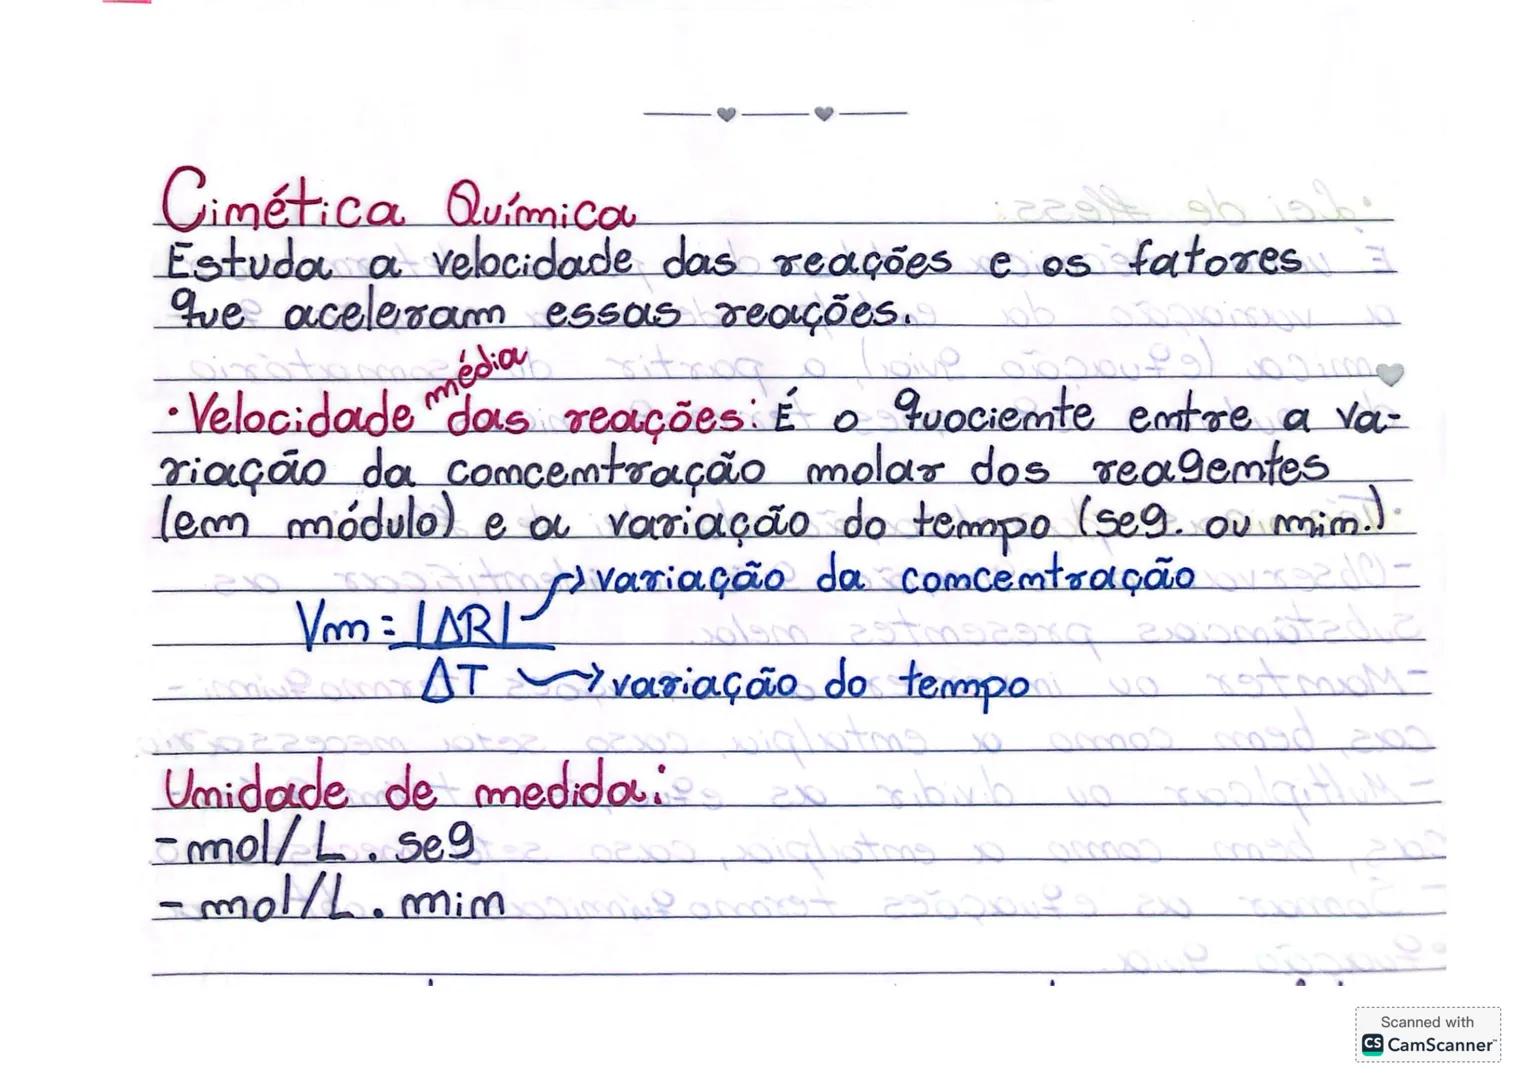 Cinética Química
Estuda a velocidade das reações e os fatores
que aceleram essas reações.
média
• Velocidade das reações: É o quociente entre a va-
riação da concentração molar dos reagentes
(em módulo) e a variação do tempo (seg. ou min.)
variação da concentração
Vm = |ΔR|
ΔT variação do tempo
Unidade de medida:
- mol/L . seg
- mol/L . min
Scanned with
CS CamScanner